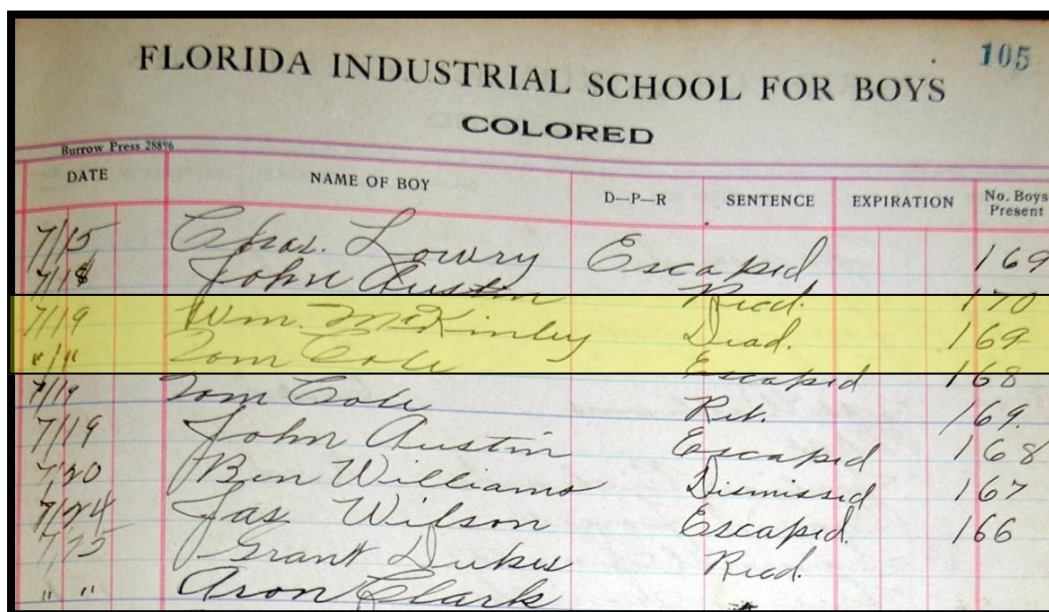 105
FLORIDA INDUSTRIAL SCHOOL FOR BOYS
COLORED
Burrow Press 28896
DATE NAME OF BOY D—P—R SENTENCE EXPIRATION No. Boys Present
7/15 Chas. Lowry Escaped 169
7/18 John Austin Recd. 170
7/19 Wm. McKinley Dead. 169
"/" Tom Cole Escaped 168
7/19 Tom Cole Ret. 169.
7/19 John Austin Escaped 168
7/20 Ben Williams Dismissed 167
7/24 Jas Wilson Escaped. 166
7/25 Grant Dukes Recd.
" " Aron Clark